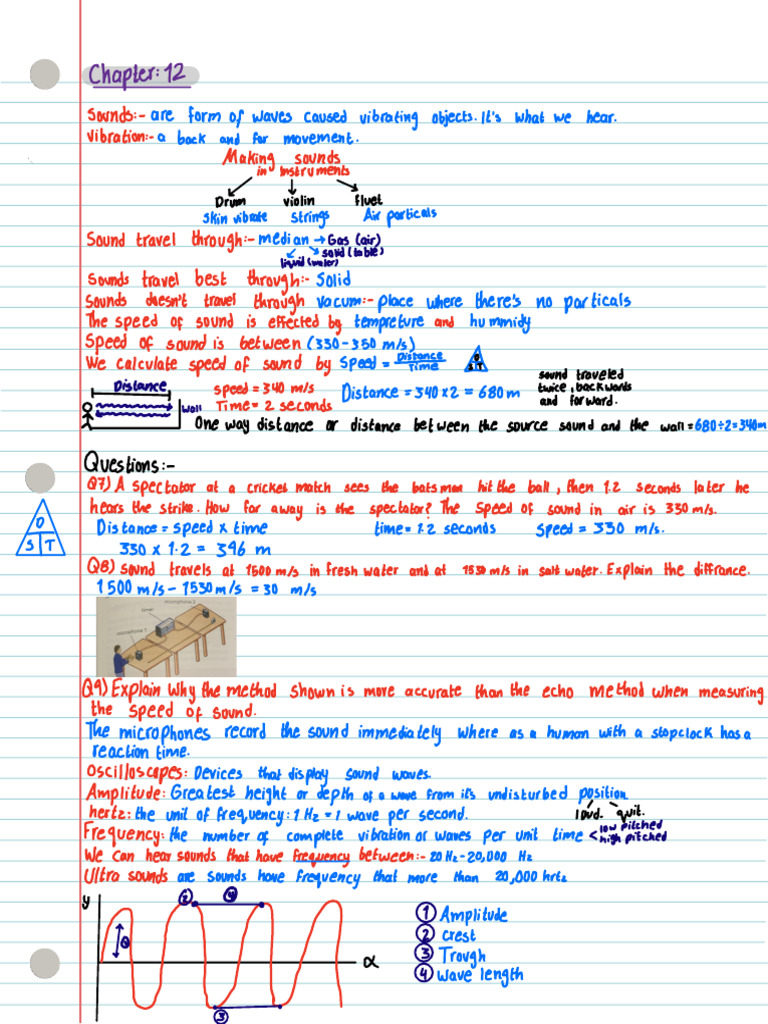 Chapter: 12
Sounds:- are form of waves caused vibrating objects. It's what we hear.
Vibration:- a back and for movement.
Making sounds
in instruments
Drum violin fluet
Skin vibrate strings Air particals
Sound travel through:- median → Gas (air)
solid (table)
liquid (water)
Sounds travel best through:- Solid
Sounds doesn't travel through vacum:- place where there's no particals
The speed of sound is effected by tempreture and hummidy
Speed of sound is between (330-350 m/s)
We calculate speed of sound by Speed = Distance/Time D S T
Distance
speed = 340 m/s
Time = 2 seconds
Distance = 340 x 2 = 680 m
sound traveled
twice, backwords
and forward.
Wall
One way distance or distance between the source sound and the wall = 680 ÷ 2 = 340m
Questions:-
Q7) A spectator at a cricket match sees the batsman hit the ball, then 1.2 seconds later he
hears the strike. How far away is the spectator? The speed of sound in air is 330 m/s.
D
S T
Distance = speed x time time = 1.2 seconds speed = 330 m/s.
330 x 1.2 = 396 m
Q8) sound travels at 1500 m/s in fresh water and at 1530 m/s in salt water. Explain the diffrance.
1500 m/s - 1530 m/s = 30 m/s
microphone 2
timer
microphone 1
Q9) Explain why the method shown is more accurate than the echo method when measuring
the speed of sound.
The microphones record the sound immediately where as a human with a stopclock has a
reaction time.
Oscilloscopes: Devices that display sound waves.
Amplitude: Greatest height or depth of a wave from it's undisturbed position
loud. quit.
hertz: the unit of frequency: 1 Hz = 1 wave per second.
Frequency: the number of complete vibration or waves per unit time < low pitched
high pitched
We can hear sounds that have frequency between:- 20 Hz - 20,000 Hz
Ultra sounds are sounds have frequency that more than 20,000 hrtz
y
② ④
①
x
③
① Amplitude
② crest
③ Trough
④ wave length